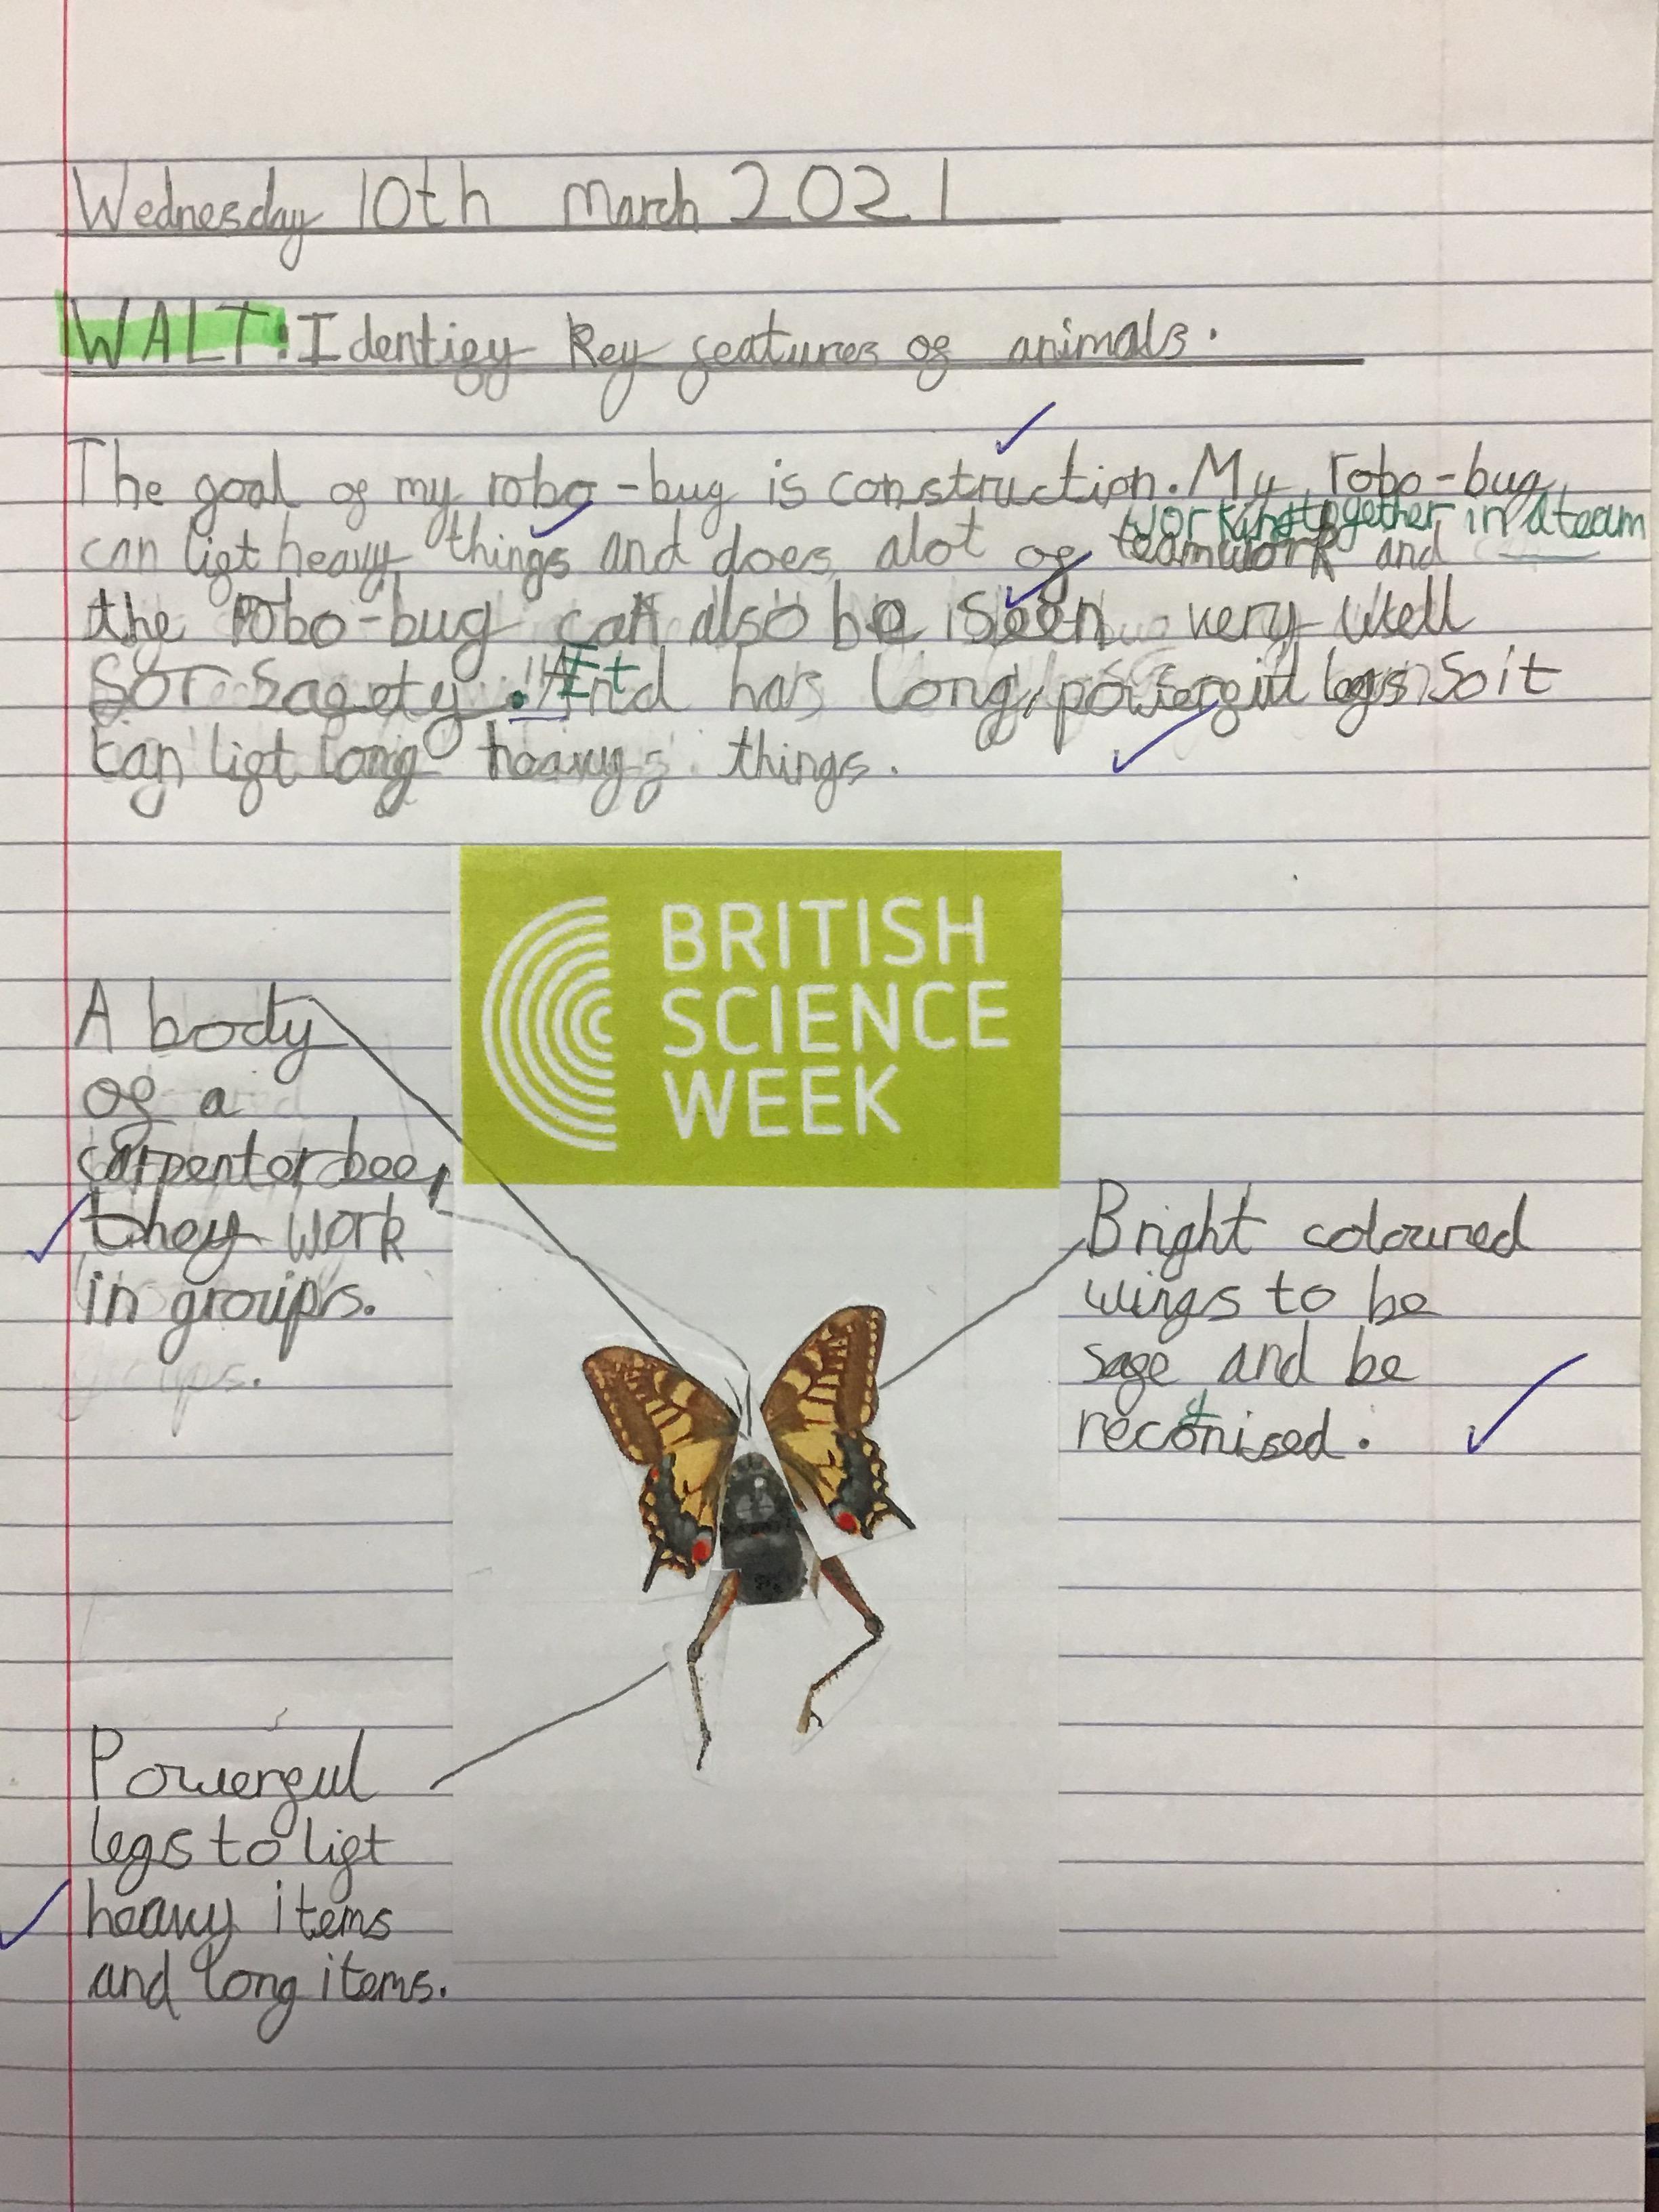 Wednesday 10th March 2021
WALT: Identify Key features of animals.
The goal of my robo-bug is construction. My robo-bug
working together in a team
can lift heavy things and does alot of teamwork and
the robo-bug can also be seen very well
for safety. It has long, powerful legs so it
can lift long heavy things.
BRITISH
SCIENCE
WEEK
A body
of a
carpenter bee,
they work
in groups.
Bright coloured
wings to be
safe and be
recognised.
Powerful
legs to lift
heavy items
and long items.